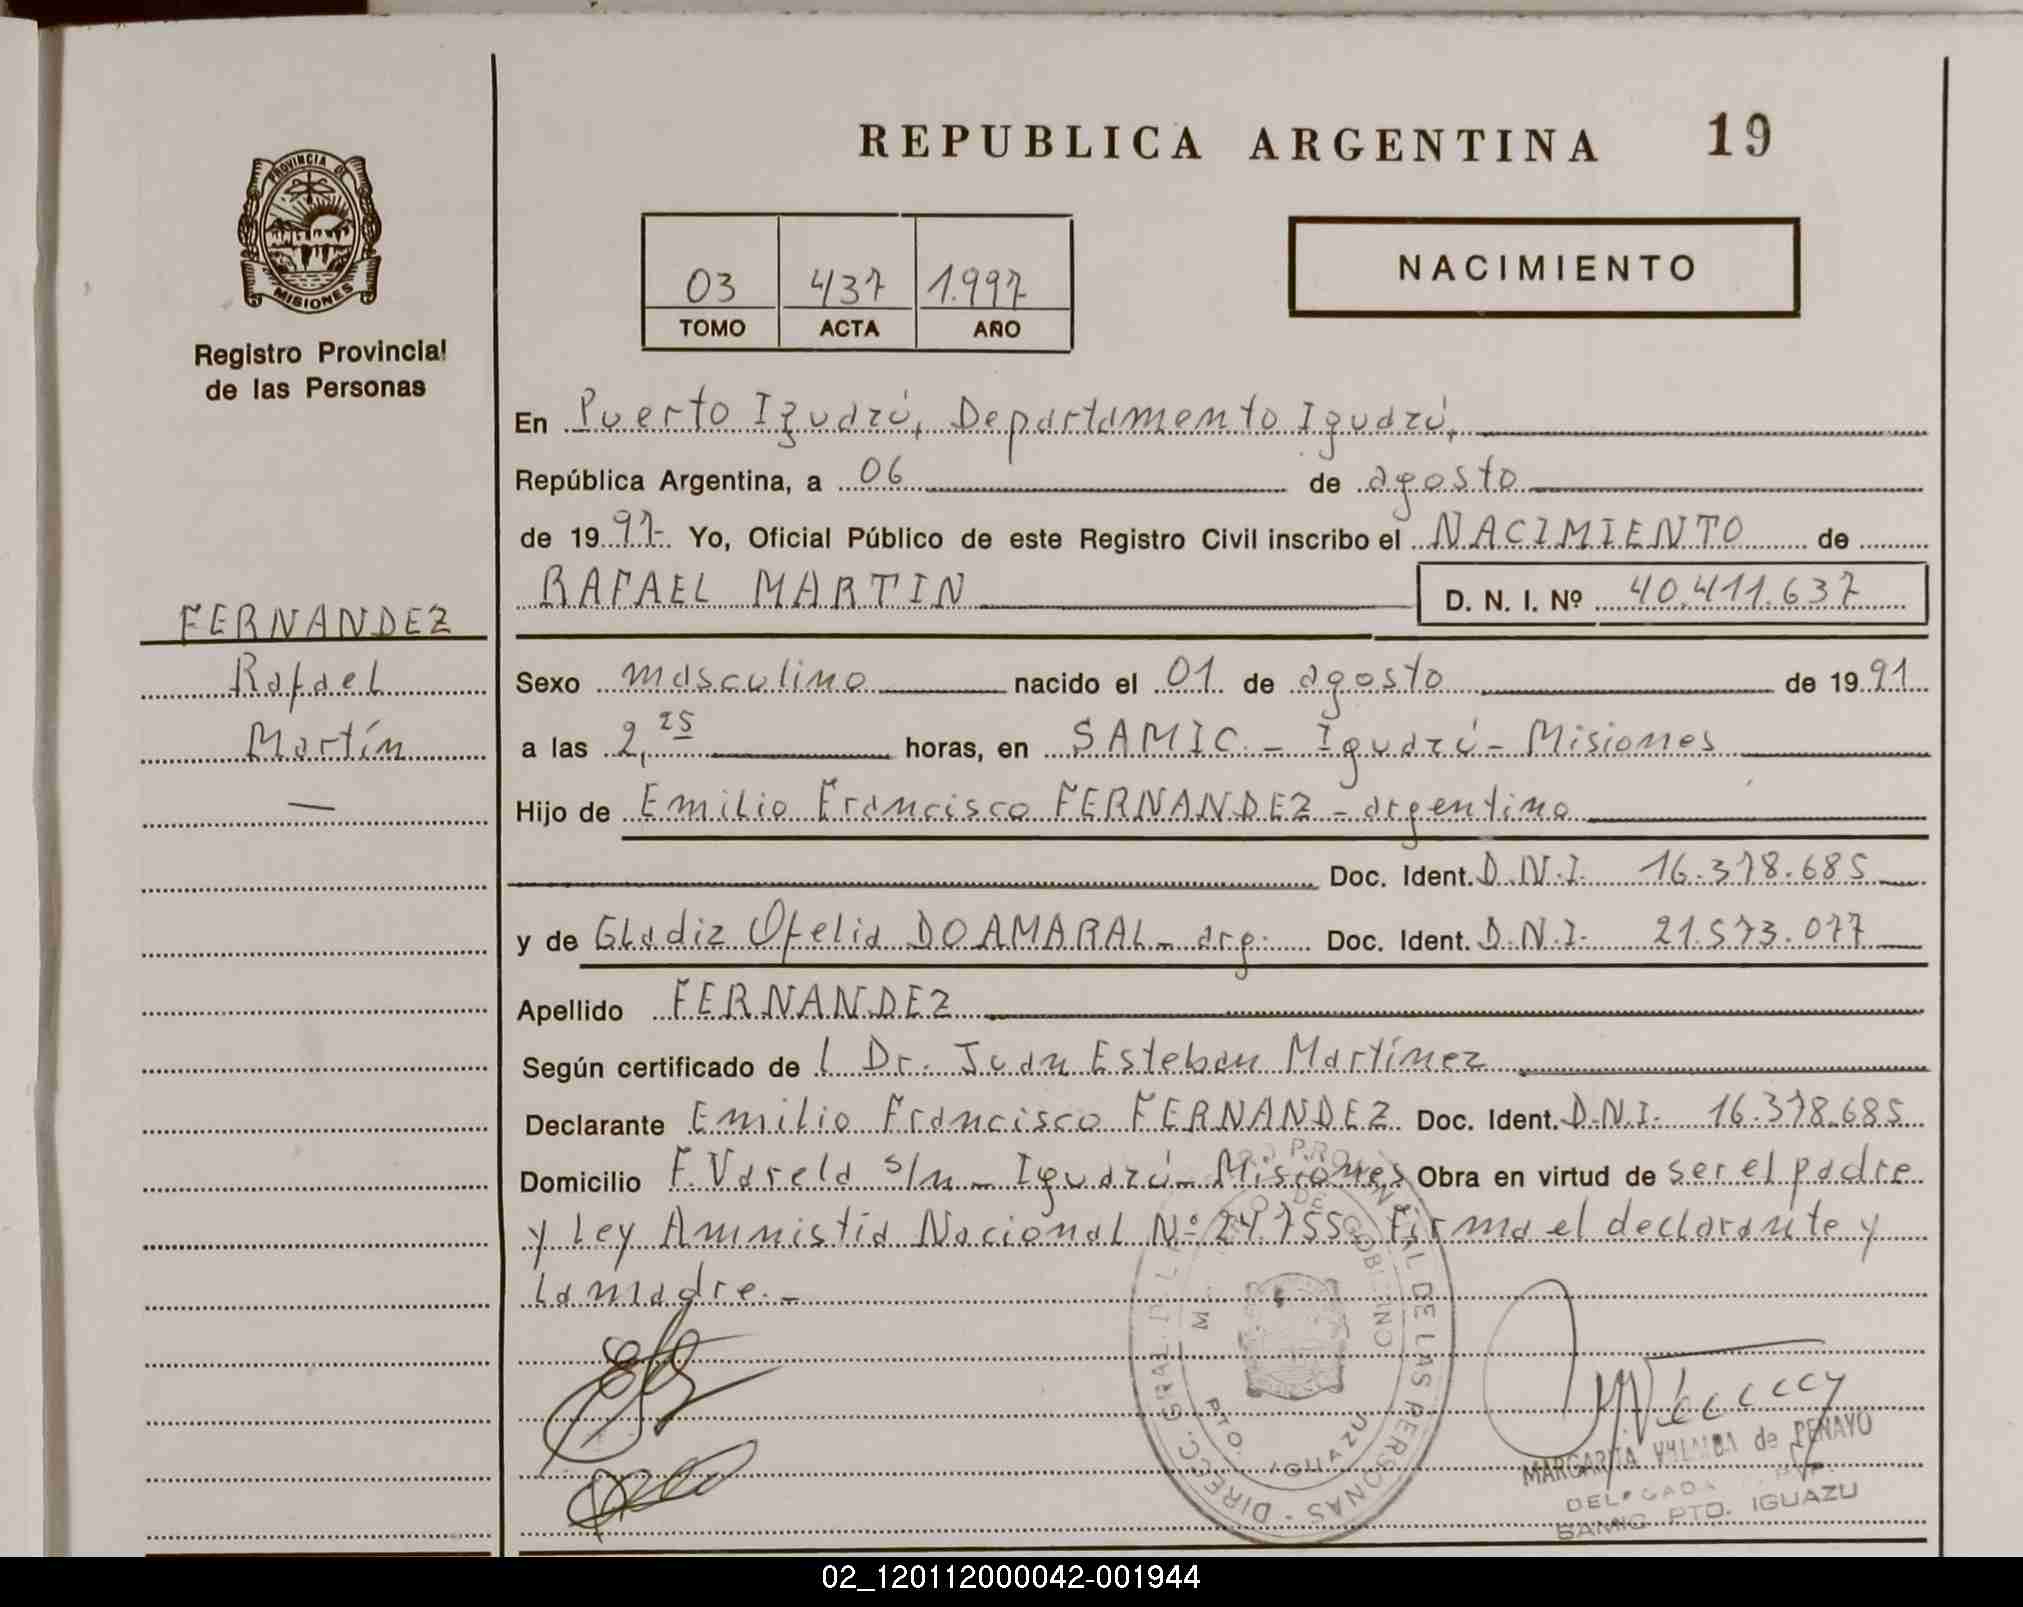 REPUBLICA ARGENTINA 19
PROVINCIA DE
MISIONES
Registro Provincial
de las Personas
03 437 1.997
TOMO ACTA AÑO
NACIMIENTO
En Puerto Iguazú, Departamento Iguazú,
República Argentina, a 06 de agosto
de 1997 Yo, Oficial Público de este Registro Civil inscribo el NACIMIENTO de
RAFAEL MARTIN D. N. I. Nº 40.411.637
FERNANDEZ
Rafael
Martín
—
Sexo masculino nacido el 01 de agosto de 1991
a las 2,25 horas, en SAMIC - Iguazú - Misiones
Hijo de Emilio Francisco FERNANDEZ - argentino
Doc. Ident. D.N.I. 16.378.685
y de Gladiz Ofelia DO AMARAL - arg. Doc. Ident. D.N.I. 21.573.077
Apellido FERNANDEZ
Según certificado de l Dr. Juan Esteban Martínez
Declarante Emilio Francisco FERNANDEZ Doc. Ident. D.N.I. 16.378.685
Domicilio F. Varela s/n - Iguazú - Misiones Obra en virtud de ser el padre
y Ley Amnistía Nacional Nº 24.755. Firma el declarante y
la madre.-
DE LAS PERSONAS
PTO. IGUAZU
MARGARITA de PENAYO
SAMIC PTO. IGUAZU
02_120112000042-001944